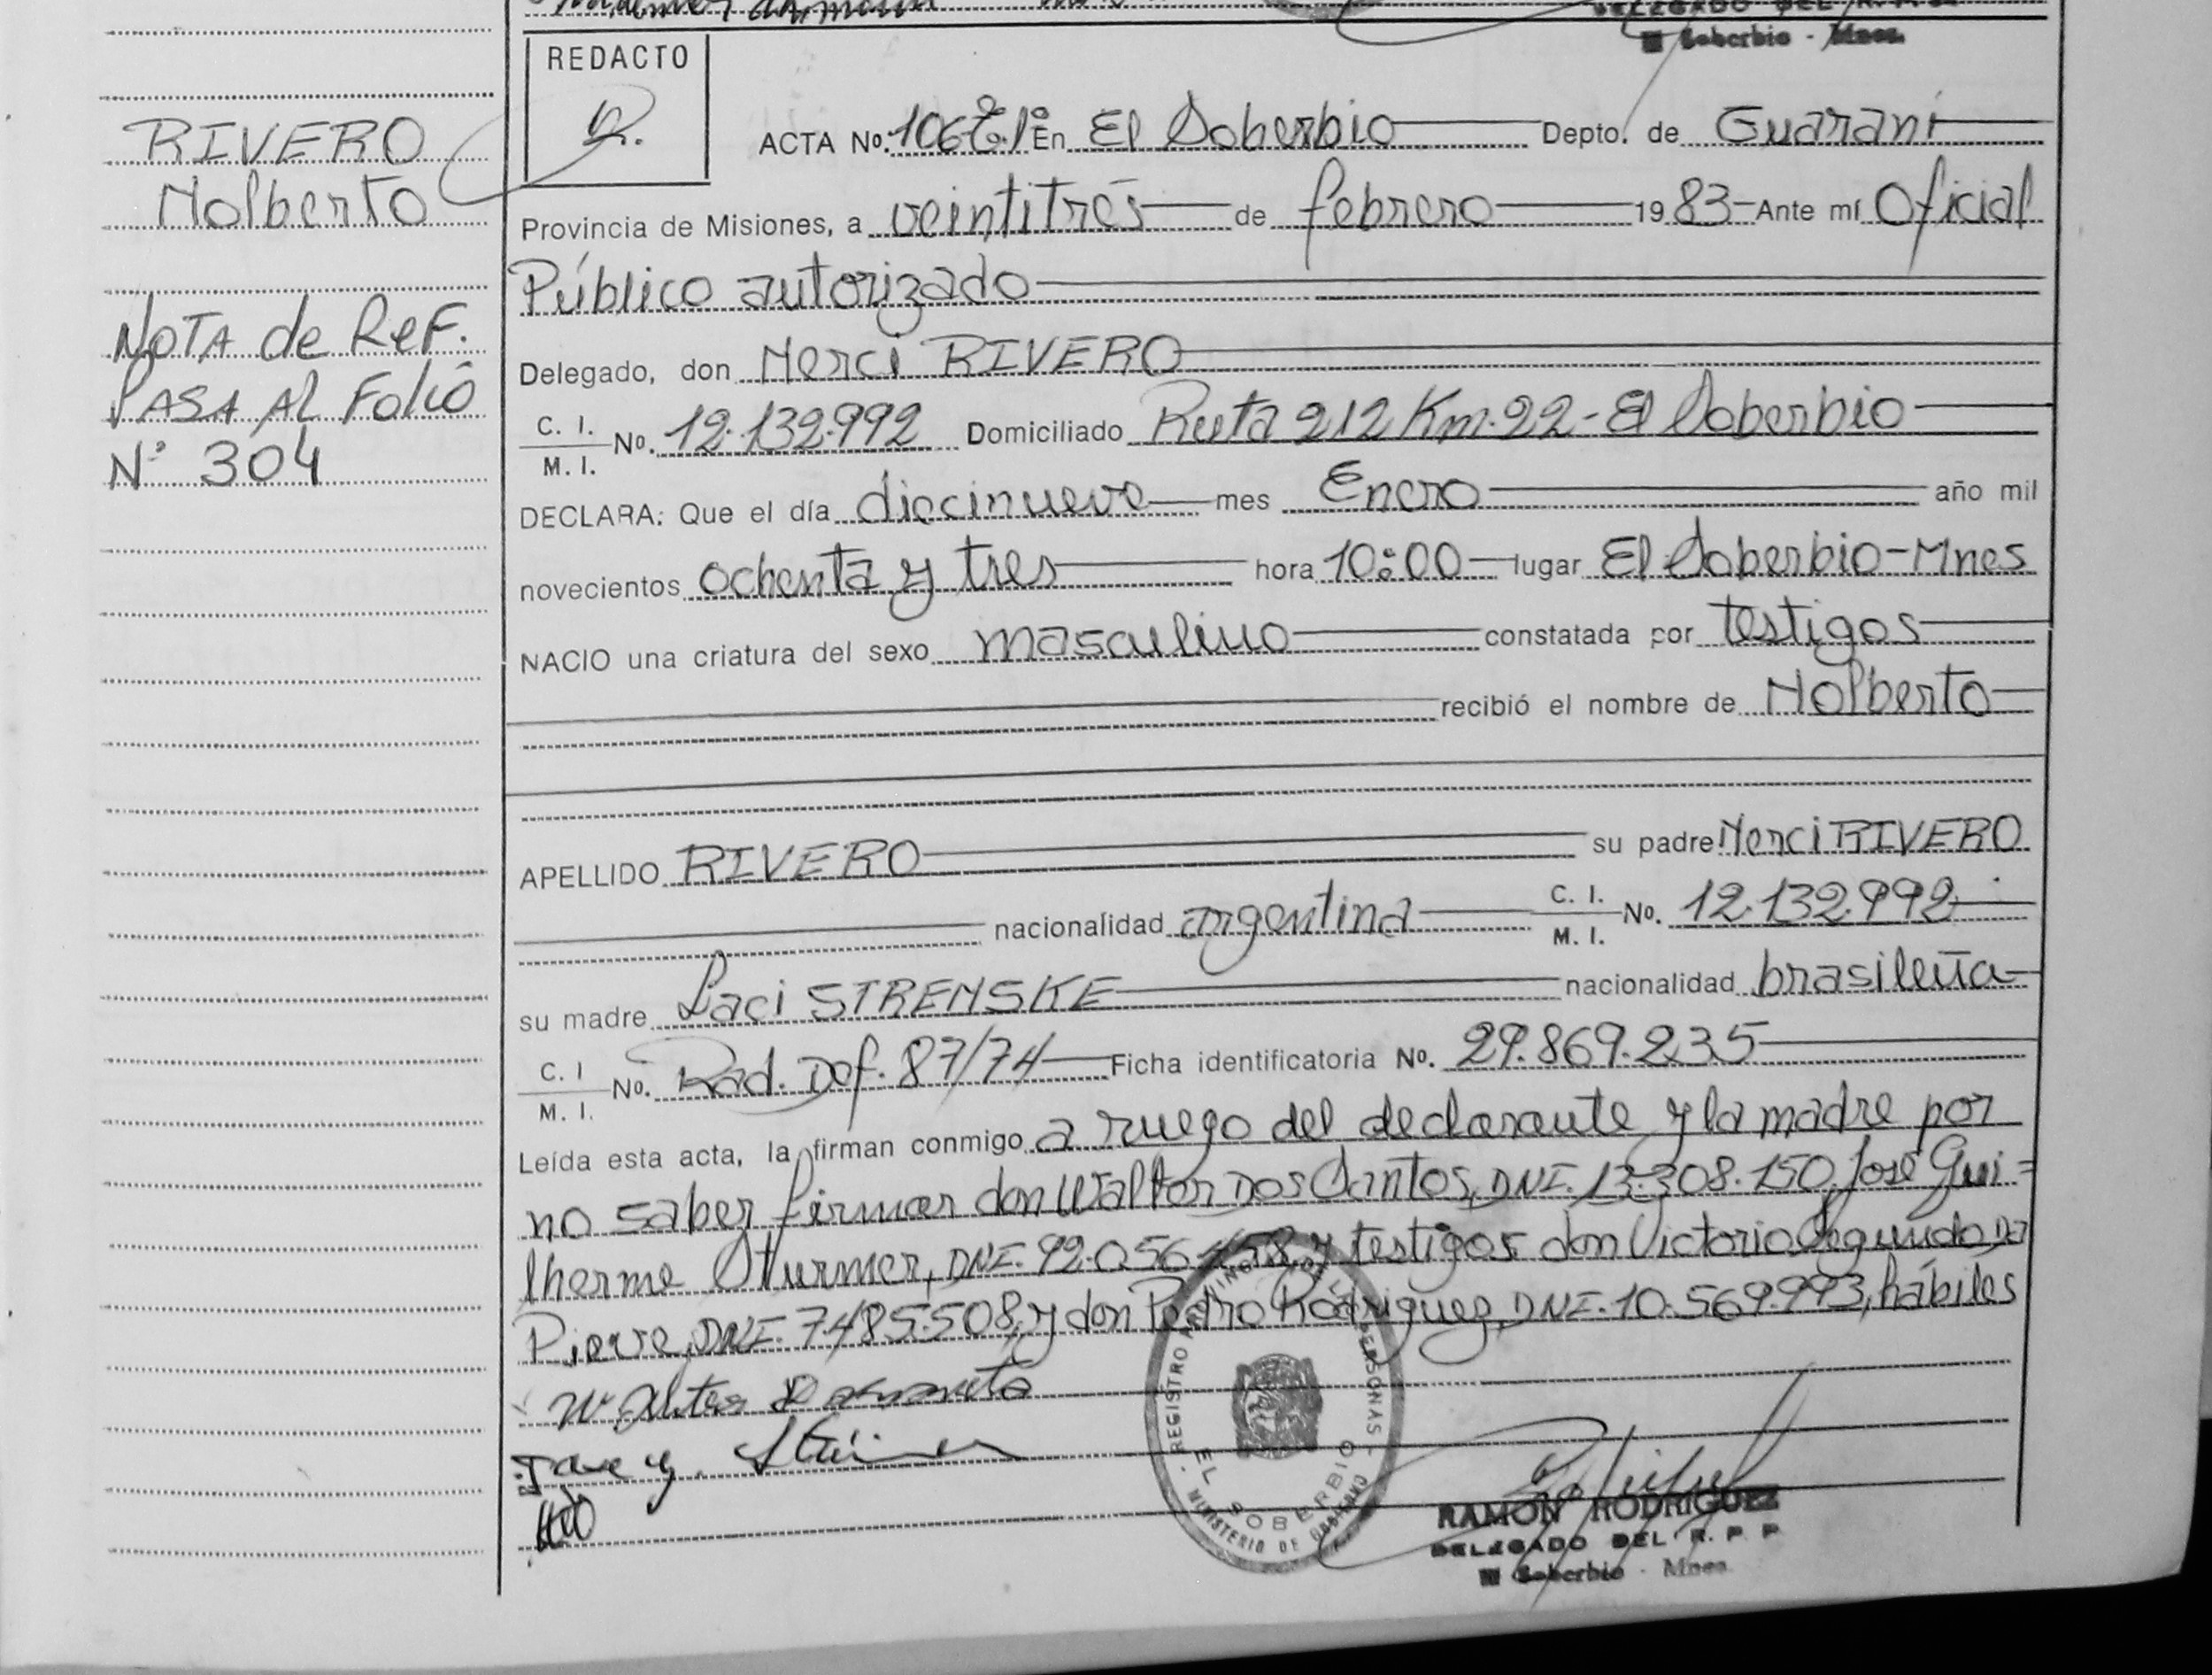 DELEGADO DEL R.P.P.
El Soberbio - Mnes.
REDACTO
RIVERO
Nolberto
NOTA de ReF.
PASA AL Folio
N° 304
ACTA No. 106 En El Soberbio Depto. de Guaraní
Provincia de Misiones, a veintitrés de febrero 1983 Ante mí Oficial
Público autorizado
Delegado, don Nerci RIVERO
C. I. M. I. No. 12.132.992 Domiciliado Ruta 212 Km. 22 - El Soberbio
DECLARA: Que el día diecinueve mes Enero año mil
novecientos ochenta y tres hora 10:00 lugar El Soberbio-Mnes
NACIO una criatura del sexo masculino constatada por testigos
recibió el nombre de Nolberto
APELLIDO RIVERO su padre Nerci RIVERO
nacionalidad argentina C. I. M. I. No. 12.132.992
su madre Laci STRENSKE nacionalidad brasileña
C. I M. I. No. Rad. Def. 87/74 Ficha identificatoria No. 29.869.235
Leída esta acta, la firman conmigo a ruego del declarante y la madre por
no saber firmar don Walter Dos Santos, DNI. 13.308.150, José Gui=
lherme Sturmer, DNI. 92.056.458, y testigos don Victorio Segundo De
Pieve, DNI. 7.485.508, y don Pedro Rodriguez, DNI. 10.569.993, hábiles
REGISTRO PROVINCIAL DE LAS PERSONAS
EL SOBERBIO
MINISTERIO DE GOBIERNO
RAMON RODRIGUEZ
DELEGADO DEL R. P. P.
El Soberbio - Mnes.